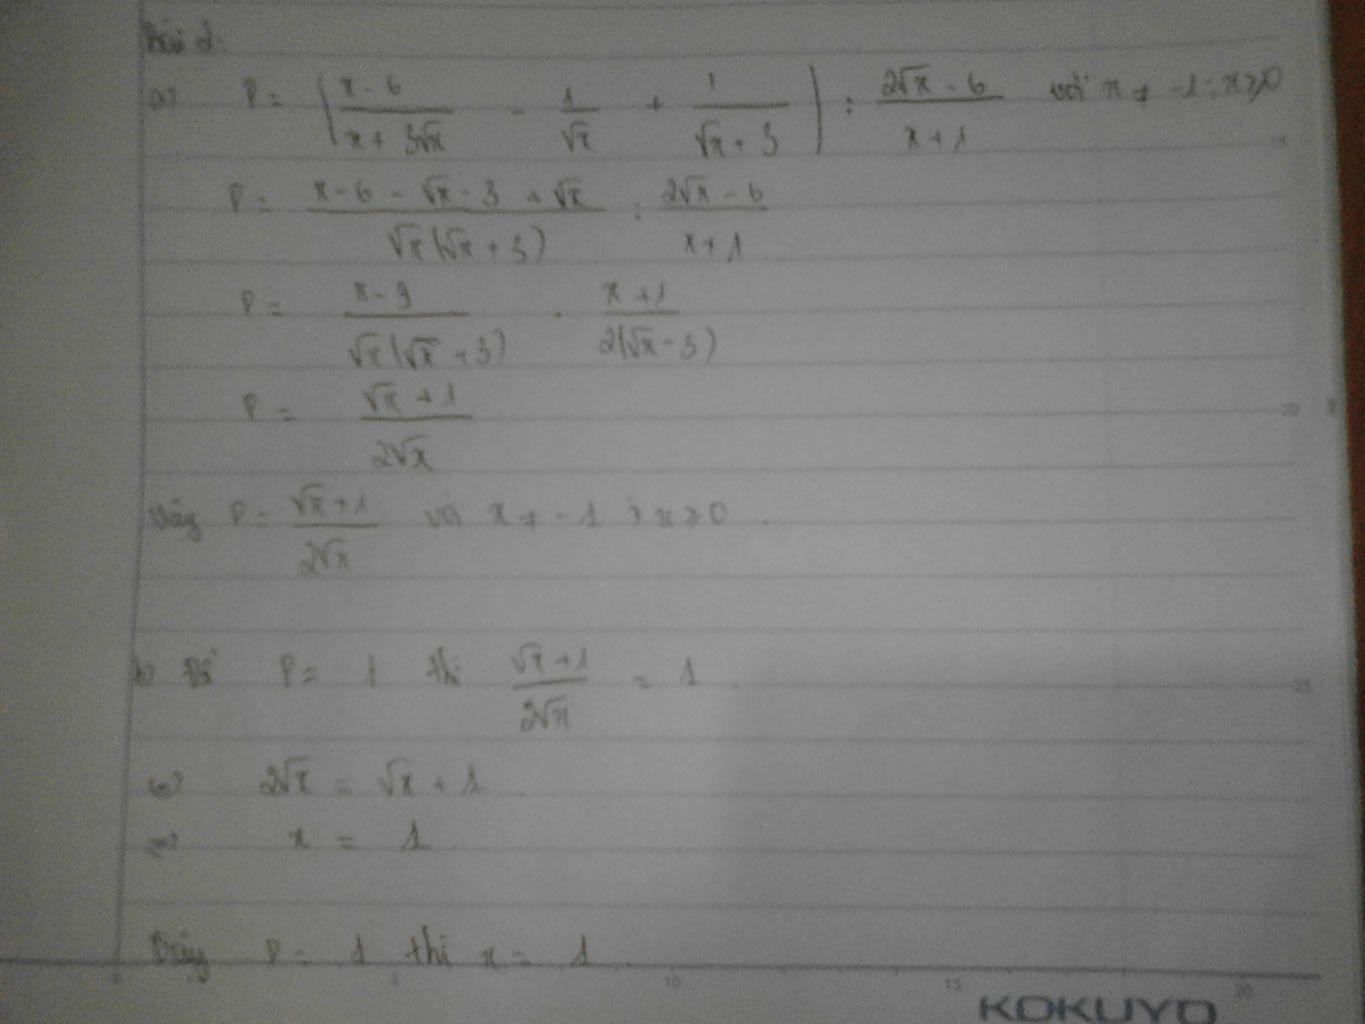 Bài 2:
a) P = ( (x - 6)/(x + 3√x) - 1/√x + 1/(√x + 3) ) : (2√x - 6)/(x + 1) với x ≠ -1 ; x ≥ 0
P = (x - 6 - √x - 3 + √x)/(√x(√x + 3)) : (2√x - 6)/(x + 1)
P = (x - 9)/(√x(√x + 3)) . (x + 1)/(2(√x - 3))
P = (√x + 1)/(2√x)
Vậy P = (√x + 1)/(2√x) với x ≠ -1 ; x ≥ 0.
b) Để P = 1 thì (√x + 1)/(2√x) = 1
<=> 2√x = √x + 1
=> x = 1
Vậy P = 1 thì x = 1
KOKUYO